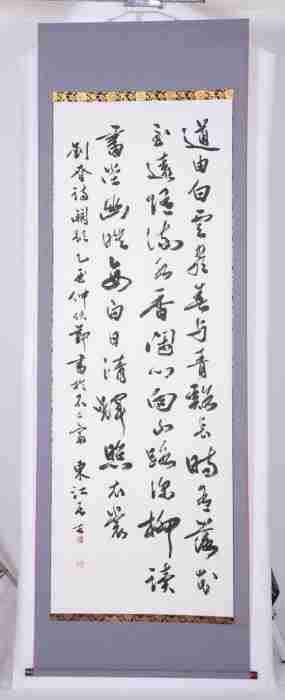 道由白雲盡春与青谿長時有落花
至遠隨流水香閒門向山路深柳讀
書堂幽映每白日清輝照衣裳
劉眘詩闕題乙亥仲秋節書於不二窗 東江